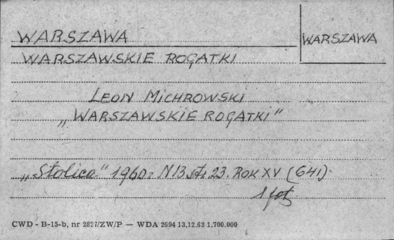 WARSZAWA
WARSZAWA
WARSZAWSKIE ROGATKI
LEON MICHROWSKI
„WARSZAWSKIE ROGATKI"
„Stolica" 1960r N13 str 23. ROK XV (641).
1 fot
CWD - B-15-b, nr 2827/ZW/P — WDA 2694 13.12.62 1.700.000